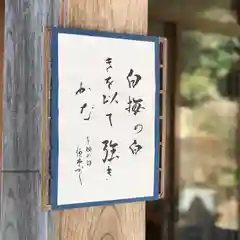 白梅の白
きを以て強き
かな